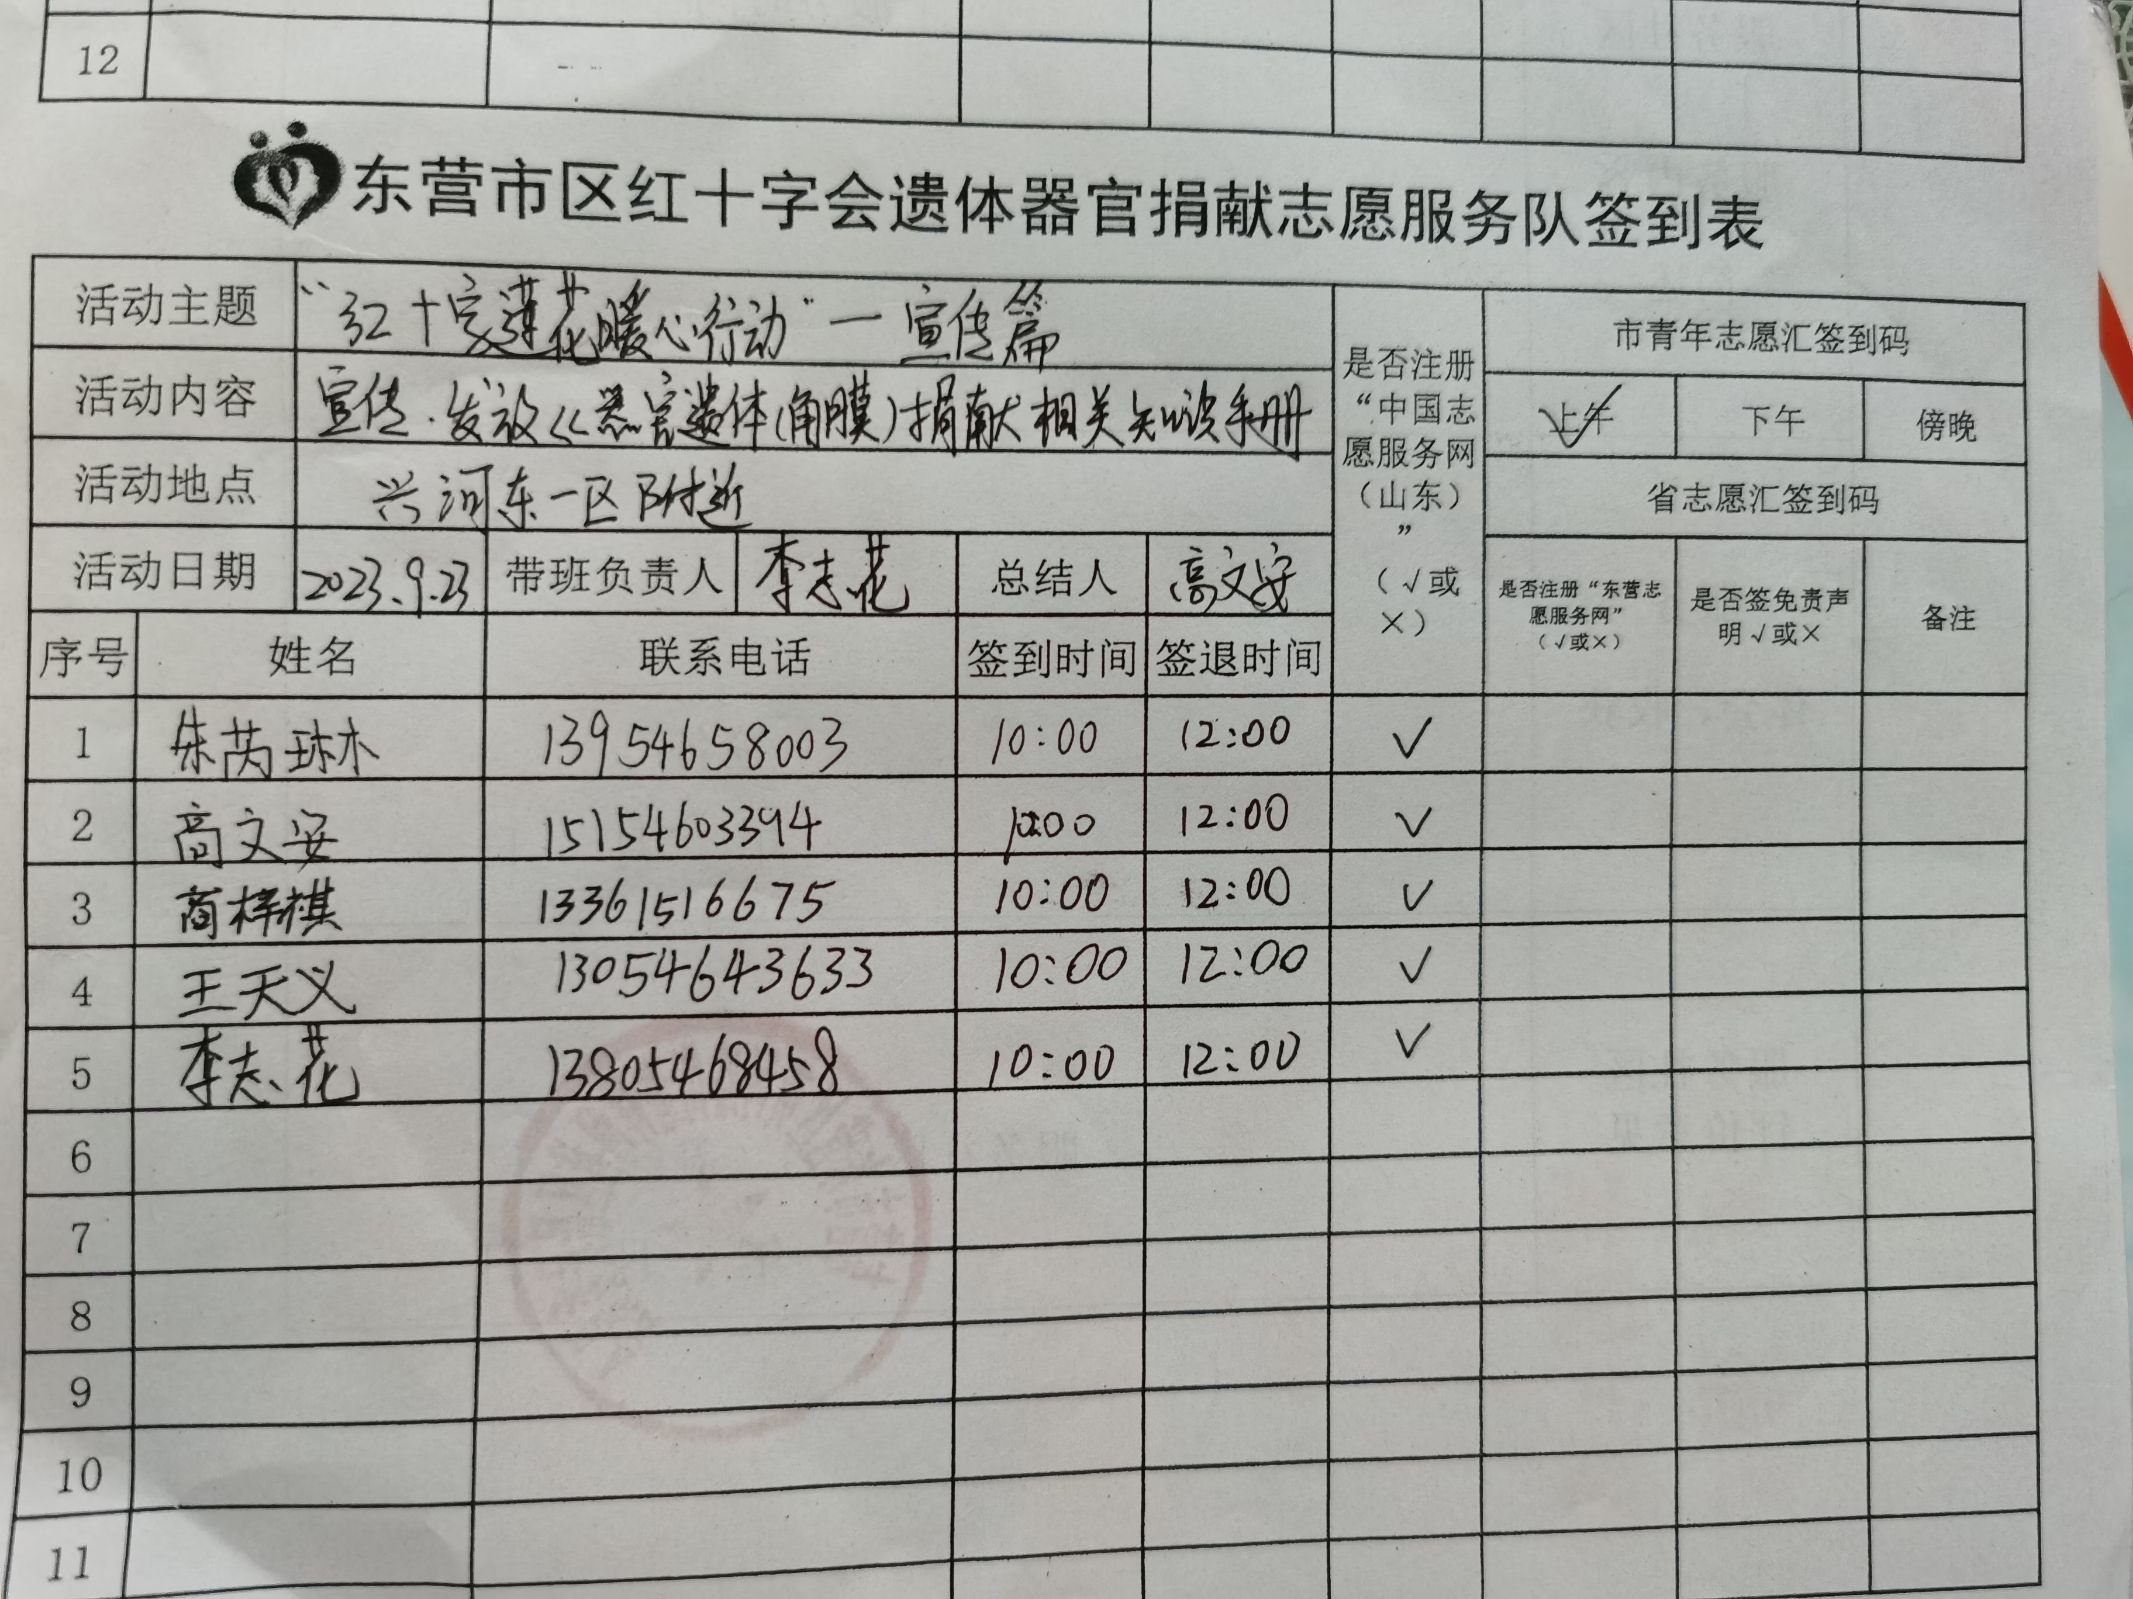 12
东营市区红十字会遗体器官捐献志愿服务队签到表
活动主题 “红十字莲花暖心行动”一宣传篇
活动内容 宣传.发放《器官遗体(角膜)捐献相关知识手册
活动地点 兴河东一区附近
活动日期 2023.9.23 带班负责人 李志花 总结人 高文安
是否注册
“中国志
愿服务网
（山东）
”
（√或
×）
市青年志愿汇签到码
上午 下午 傍晚
省志愿汇签到码
是否注册“东营志
愿服务网”
（√或×）
是否签免责声
明√或×
备注
序号 姓名 联系电话 签到时间 签退时间
1 朱芮琳 13954658003 10:00 12:00 √
2 高文安 15154603394 10:00 12:00 √
3 商梓棋 13361516675 10:00 12:00 √
4 王天义 13054643633 10:00 12:00 √
5 李志花 13805468458 10:00 12:00 √
6
7
8
9
10
11